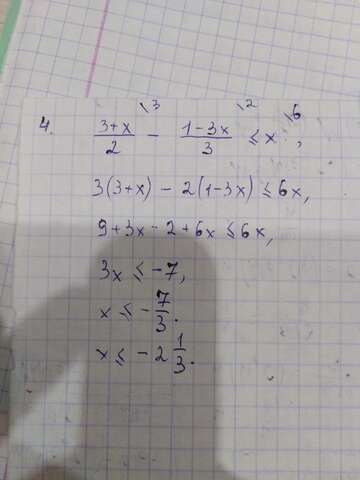 4. \3 \2 \6
(3+x)/2 − (1−3x)/3 ≤ x ;
3(3+x) − 2(1−3x) ≤ 6x,
9+3x−2+6x ≤ 6x,
3x ≤ −7,
x ≤ −7/3.
x ≤ −2 1/3.